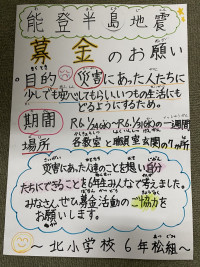 能登半島地震
募金のお願い
目的 災害にあった人たちに
少しでも安心してもらい、いつもの生活にも
どるようにするため。
期間 R6.1/24(水)~R6.1/31(水)の一週間
場所 各教室と職員室玄関の7ヶ所
災害にあった人達のことを想い自分
たちにできることを6年生みんなで考えました。
みなさんぜひ募金活動のご協力
をお願いします。
~北小学校6年松組~